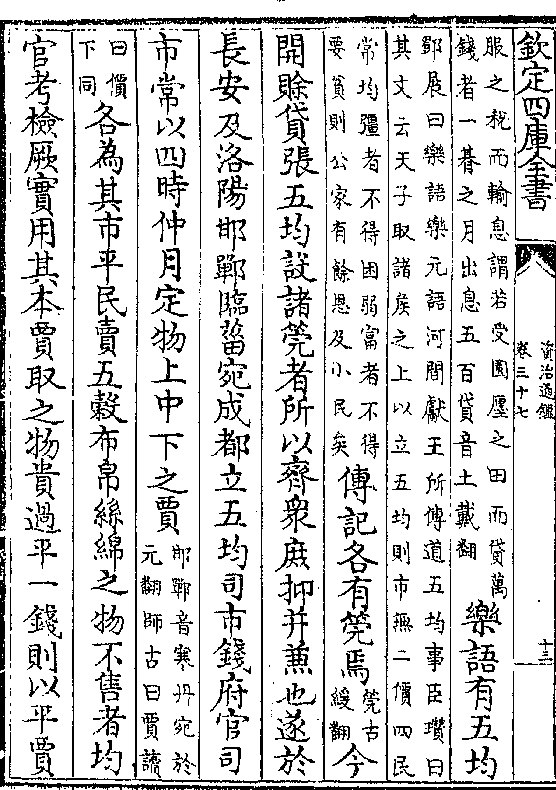 欽定四庫全書
資治通鑑
卷三十七
十三
服之稅而輸息謂若受園廛之田而貸萬
錢者一朞之月出息五百貸音土戴翻
樂語有五均
鄧展曰樂語樂元語河間獻王所傳道五均事臣瓚曰
其文云天子取諸侯之土以立五均則市無二價四民
常均彊者不得困弱富者不得
要貧則公家有餘恩及小民矣
傳記各有筦焉
筦古
緩翻
今
開賒貸張五均設諸筦者所以齊衆庶抑并兼也遂於
長安及洛陽邯鄲臨甾宛成都立五均司市錢府官司
市常以四時仲月定物上中下之賈
邯鄲音寒丹宛於
元翻師古曰賈讀
曰價
下同
各為其市平民賣五穀布帛絲綿之物不售者均
官考檢厥實用其本賈取之物貴過平一錢則以平賈